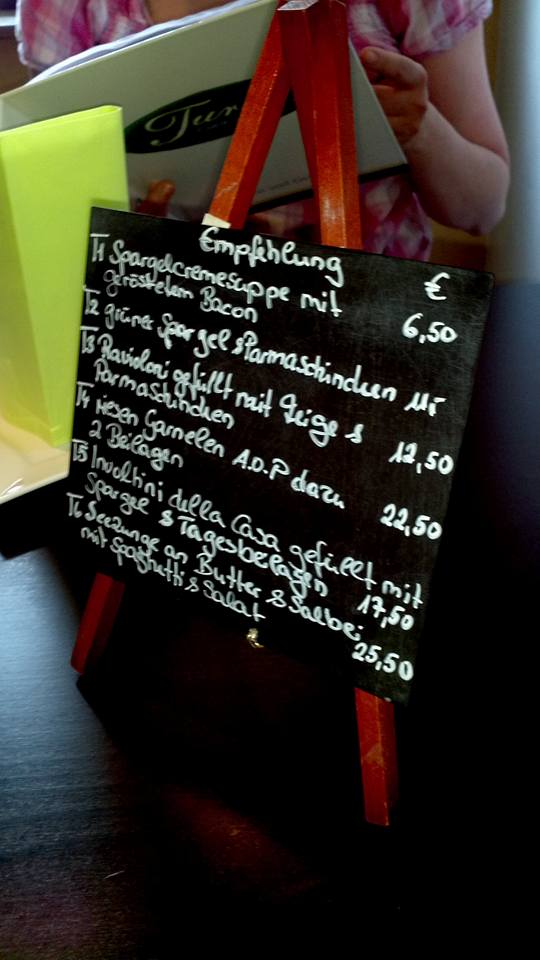 Tur
Empfehlung €
T1 Spargelcremesuppe mit
geröstetem Bacon 6,50
T2 grüner Spargel & Parmaschincken Mi
T3 Ravioloni gefüllt mit Feige &
Parmaschincken 12,50
T4 riesen Garnelen A.O.P dazu
2 Beilagen 22,50
T5 Involtini della Casa gefüllt mit
Spargel & Tagesbeilagen 17,50
T6 Seezunge an Butter & Salbei
mit Spaghetti & Salat 25,50